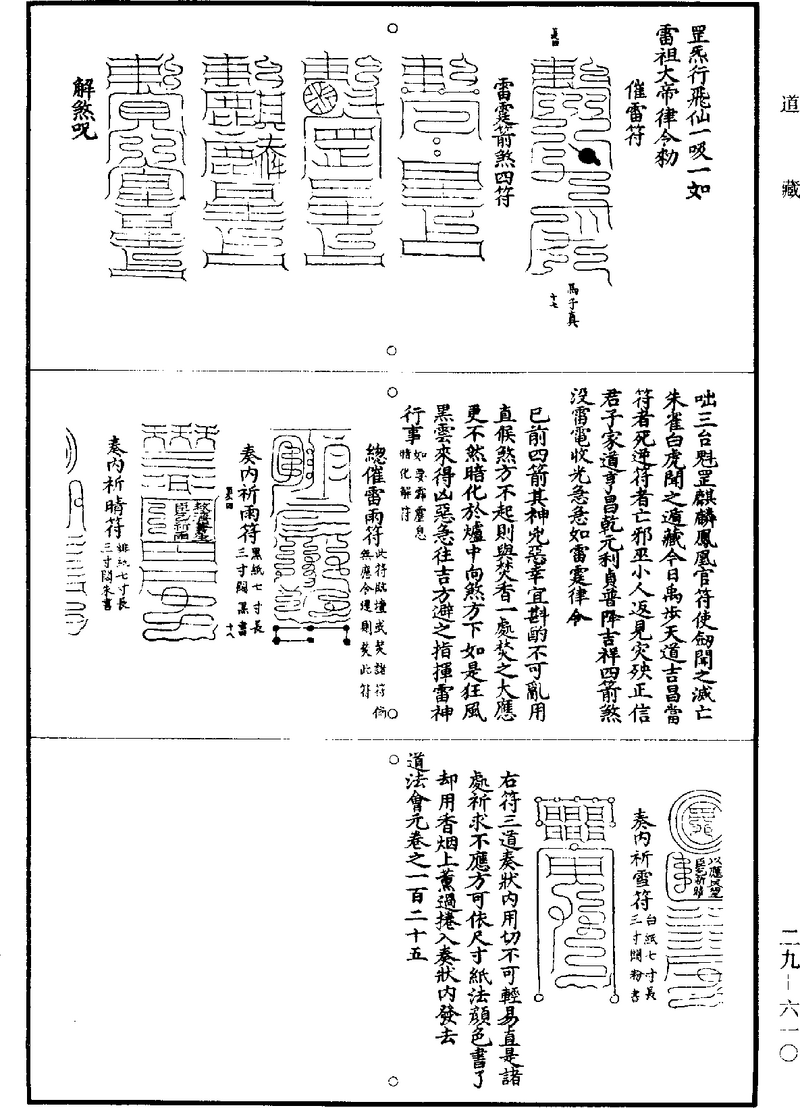 道藏
罡炁行飛仙一吸一如
雷祖大帝律令勑
催雷符
馬子真
十七
雷霆箭煞四符
解煞呪
咄三台魁罡麒麟鳳凰官符使劒聞之滅亡
朱雀白虎聞之遁藏今日禹步天道吉昌當
符者死逆符者亡邪巫小人返見灾殃正信
君子家道亨昌乾元利貞普降吉祥四箭煞
没雷電收光急急如雷霆律令
已前四箭其神兇惡幸宜斟酌不可亂用
直候煞方不起則與焚香一處焚之大應
更不然暗化於爐中向煞方下如是狂風
黑雲來得凶惡急往吉方避之指揮雷神
行事如要霹靂息
暗化解符
總催雷雨符此符臨壇或焚諸符倘
無應令違則焚此符
奏内祈雨符黑紙七寸長
三寸闊墨書
十八
奏内祈晴符緋紙七寸長
三寸闊朱書
奏内祈雪符白紙七寸長
三寸闊粉書
右符三道奏狀内用切不可輕易直是諸
處祈求不應方可依尺寸紙法顔色書了
却用香烟上薰過捲入奏狀内發去
道法會元卷之一百二十五
二九-六一〇